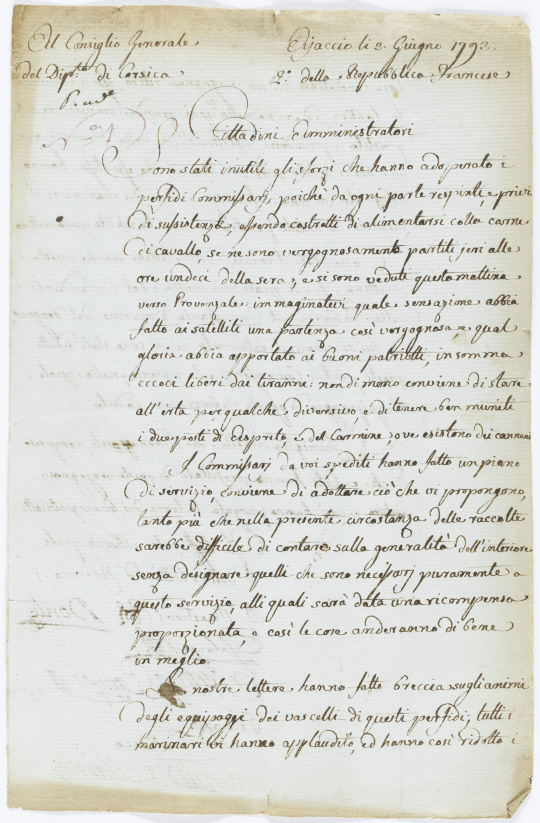 Al Consiglio Generale
del Dip.to di Corsica
Ajaccio li 8. Giugno 1793.
2.o della Repubblica Francese
N.o 1
Cittadini Amministratori
Sono stati inutili gli sforzi che hanno adoperato i
perfidi Commissarj, poiche da ogni parte respinti, e privi
di sussistenza, essendo costretti di alimentarsi colla carne
di cavallo, se ne sono vergognosamente partiti jeri alle
ore undeci della sera, e si sono vedute questa mattina
verso Provenzale: immaginatevi quale sensazione abbia
fatto ai satelliti una partenza così vergognosa e qual
gloria abbia apportato ai buoni patriotti, in somma
eccoci liberi dai tiranni: nondimeno conviene di stare
all'erta per qualche diversivo, e di tenere ben muniti
i due posti di Aspreto, e del Carmine, ove esistono dei cannoni
I Commissarj da voi spediti hanno fatto un piano
di servizio, conviene di adottare ciò che vi propongono,
tanto più che nella presente circostanza delle raccolte
sarebbe difficile di contare sulla generalità dell'interiore
senza designare quelli che sono necessarj puramente a
questo servizio, alli quali sarà data una ricompensa
proporzionata, e così le cose anderanno di bene
in meglio.
Le nostre lettere hanno fatto breccia sugli animi
degli equipaggi dei vascelli di questi perfidi, tutti i
marinari vi hanno applaudito, ed hanno così ridotto i